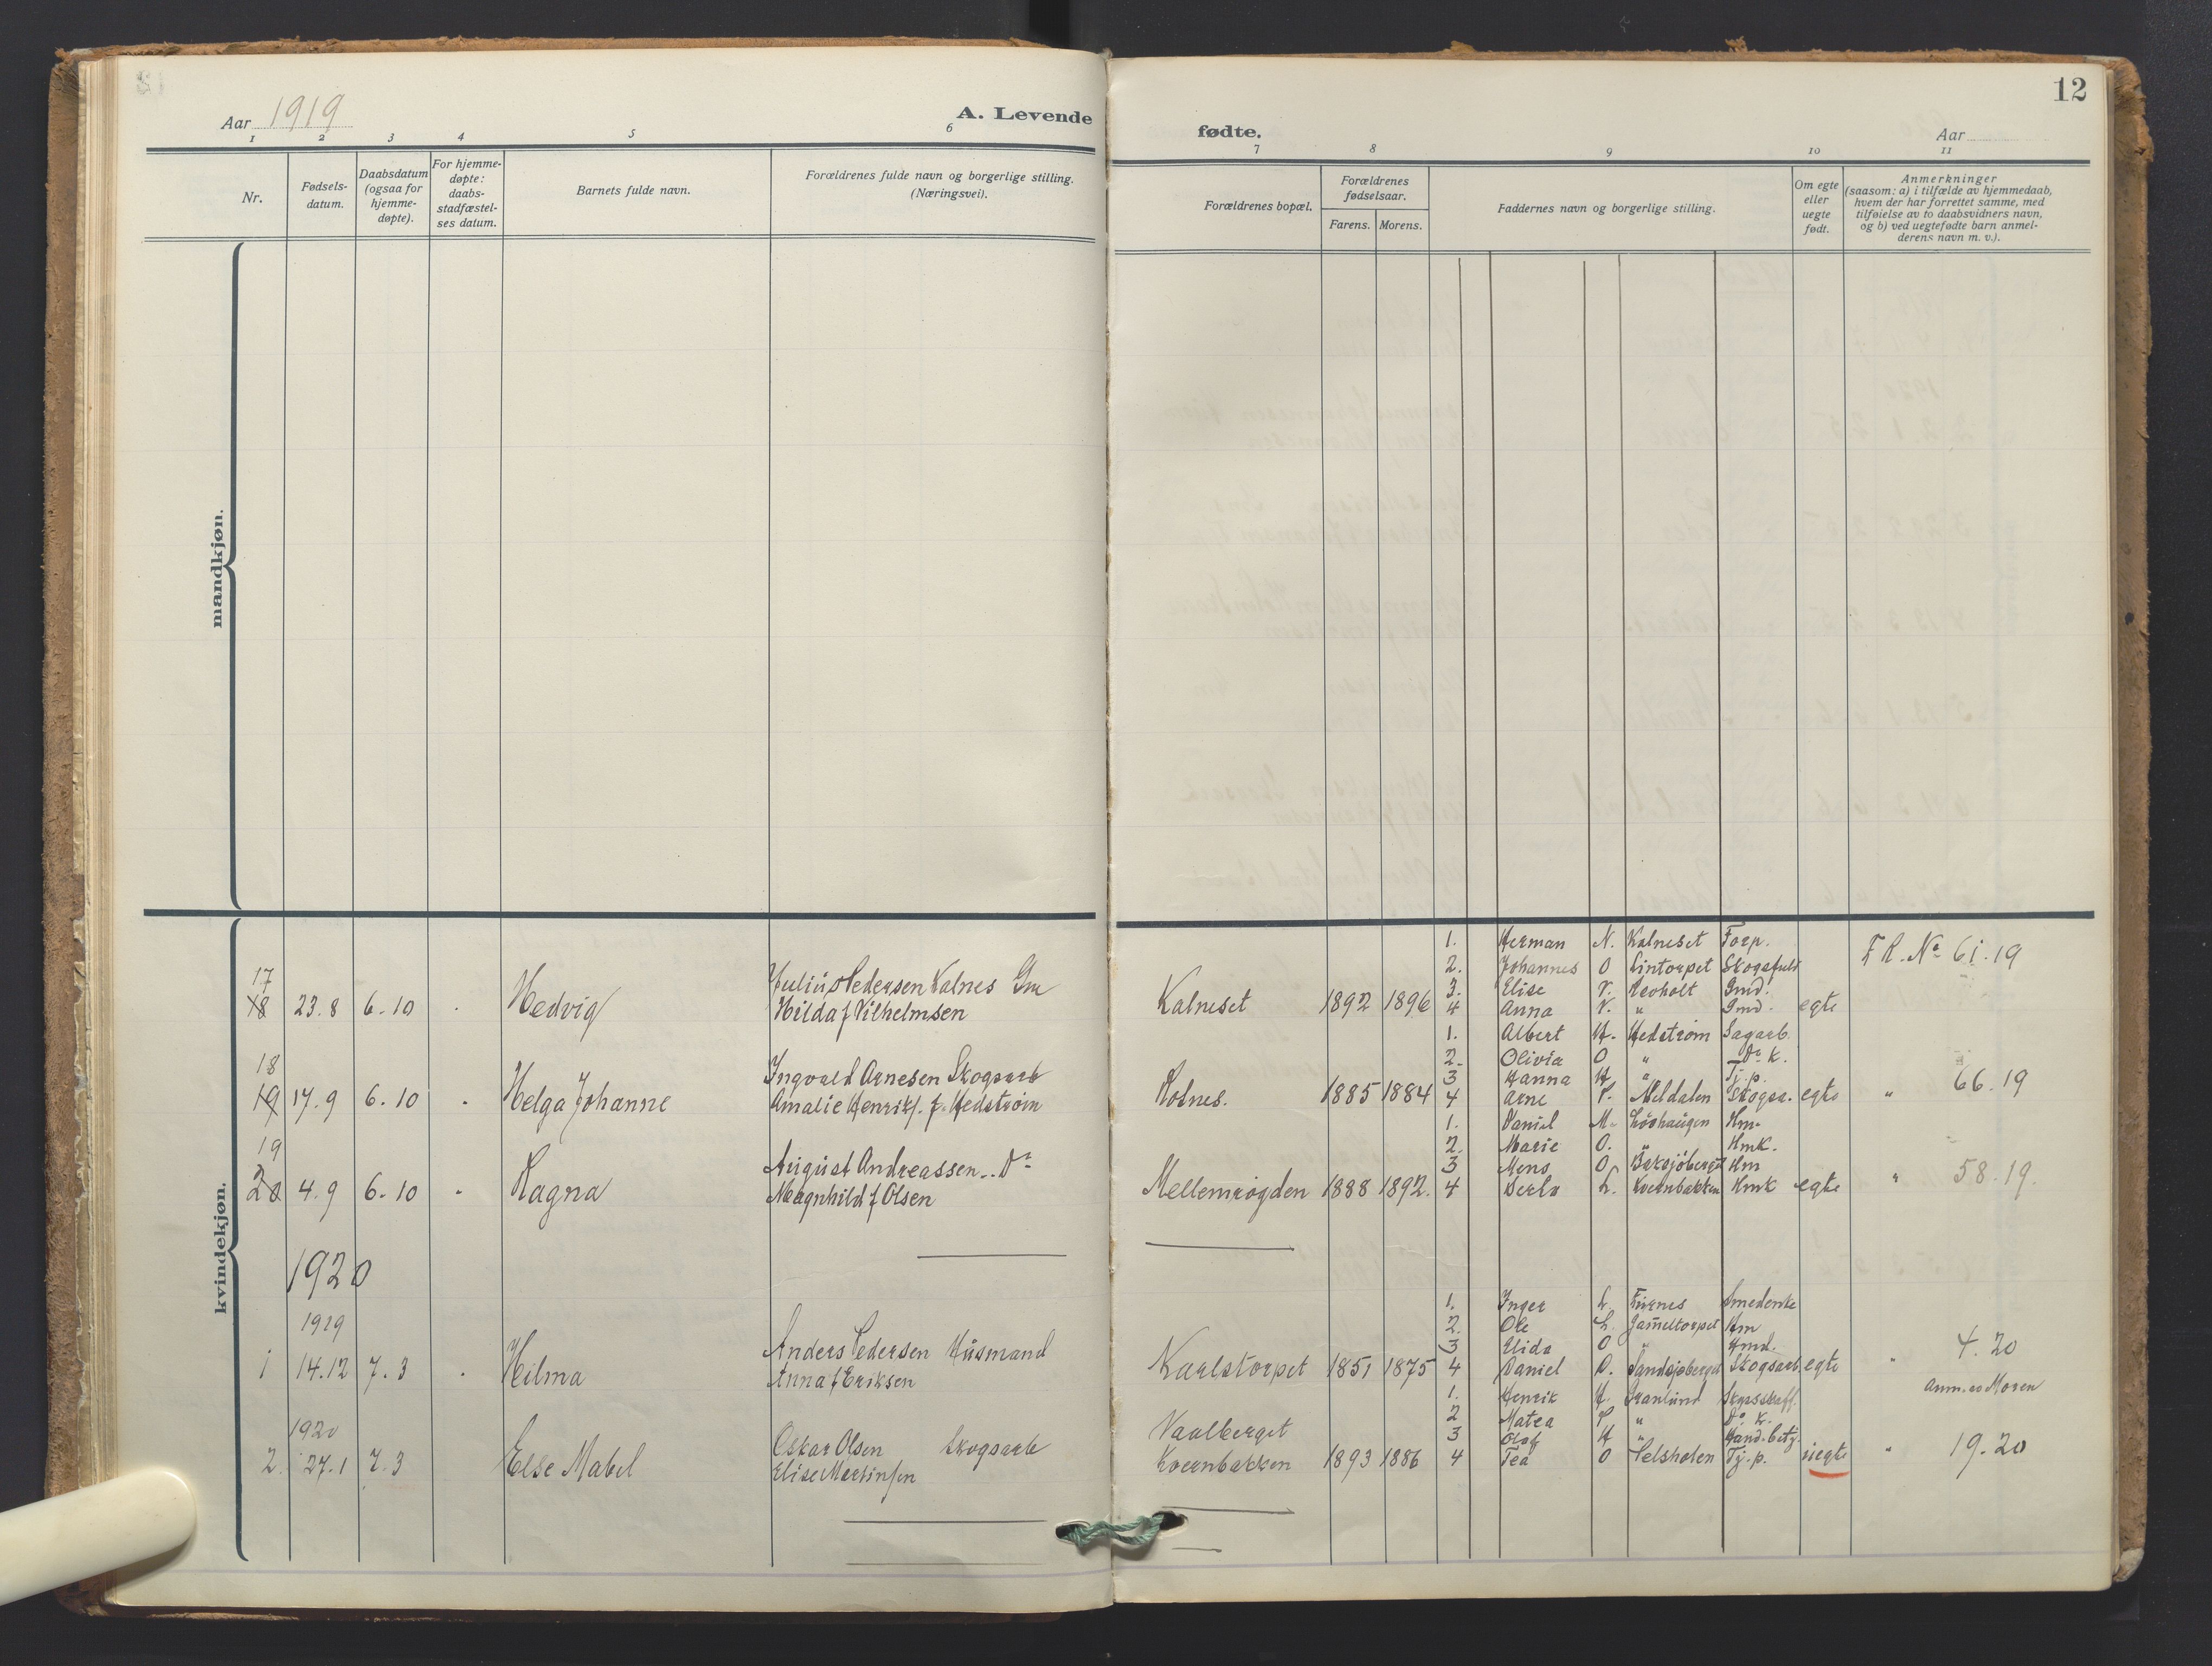 12
Aar 1919
A. Levende
fødte.
Aar
1 2 3 4 5 6 7 8 9 10 11
Nr.
Fødsels-
datum.
Daabsdatum
(ogsaa for
hjemme-
døpte).
For hjemme-
døpte:
daabs-
stadfæstel-
ses datum.
Barnets fulde navn.
Forældrenes fulde navn og borgerlige stilling.
(Næringsvei).
Forældrenes bopæl.
Forældrenes
fødselsaar.
Farens. Morens.
Faddernes navn og borgerlige stilling.
Om egte
eller
uegte
født.
Anmerkninger
(saasom: a) i tilfælde av hjemmedaab,
hvem der har forrettet samme, med
tilføielse av to daabsvidners navn,
og b) ved uegtefødte barn anmel-
derens navn m. v.).
mandkjøn.
kvindekjøn.
17
18 23.8 6.10 Hedvig
Julius Pedersen Kalnes Gm
Hilda f Vilhelmsen
Kalneset 1892 1896
1. Herman N. Kalneset Forp.
2. Johannes O Lintorpet
3. Elise Revholt Gmd.
4 Anna " Gmd.
egte
F R. No 61.19
18
19 17.9 6.10 Helga Johanne
Ingvald Arnesen Skogsarb
Amalie Henriks. f. Hedstrøm
Kolnes. 1885 1884
1. Albert H. Hedstrøm Sagarb.
2. Olivia O " Do k.
3 Hanna H " Tj.p.
4 Arne P. Meldalen Skogsa.
egte
" 66.19
19
20 4.9 6.10 Ragna
August Andreassen.. Do
Magnhild f Olsen
Mellemrøgden 1888 1892.
1. Daniel M. Løvhaugen Hm.
2. Marie O. " Hmk.
3 Mens O Baksjøberget Hm
4 Berta L. Kvernbakken Hmk
egte
" 58.19.
1920
1919
1 14.12 7.3 Hilma
Anders Pedersen Husmand
Anna f Eriksen
Karlstorpet 1851 1875
1. Inger L. Furnes Smedenke
2. Ole L. Gameltorpet Hm
3 Elida O " Hmd.
4 Daniel O. Sandsjøberget Skogsarb.
egte
" 4.20
Anm. av Moren
1920
2. 27.1 7.3 Else Mabel
Oskar Olsen Skogsarb
Elise Martinsen
Vaalberget
Kvernbakken 1893 1886
1. Henrik H. Granlund Skysskaff.
2 Matea P. " Do k.
3 Olaf H " Hand.betj.
4 Tea O Selsholen Tj.p.
uegte
" 19.20